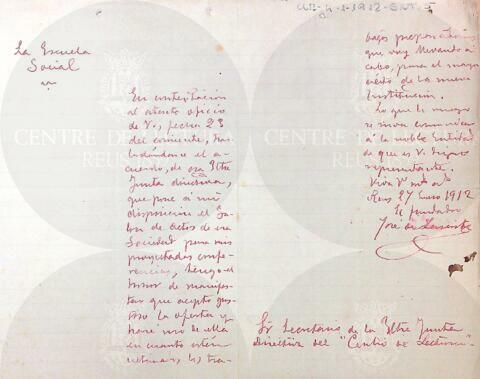 La Escuela
Social
En contestación
al atento oficio
de V., fecha 23
del corriente, tras-
ladándome el a-
cuerdo, de esa Iltre
Junta directiva,
que pone a mi
disposición el Sa-
lón de actos de esa
Sociedad para mis
proyectadas confe-
rencias, tengo el
honor de manifes-
tar que acepto gus-
toso la oferta y
haré uso de ella
en cuanto estén
ultimados los tra-
bajos preparatorios
que voy llevando a
cabo, para el mayor
éxito de la nueva
Institución.
Lo que le ruego
se sirva comunicar
a la noble Entidad
de que es V. digno
representante.
Viva V. m. a.
Reus 27 Enero 1912
El fundador
José de
Sr. Secretario de la Iltre Junta
directiva del "Centro de Lectura".
CENTRE DE LECTURA
REUS
CENTRE DE LECTURA
REUS